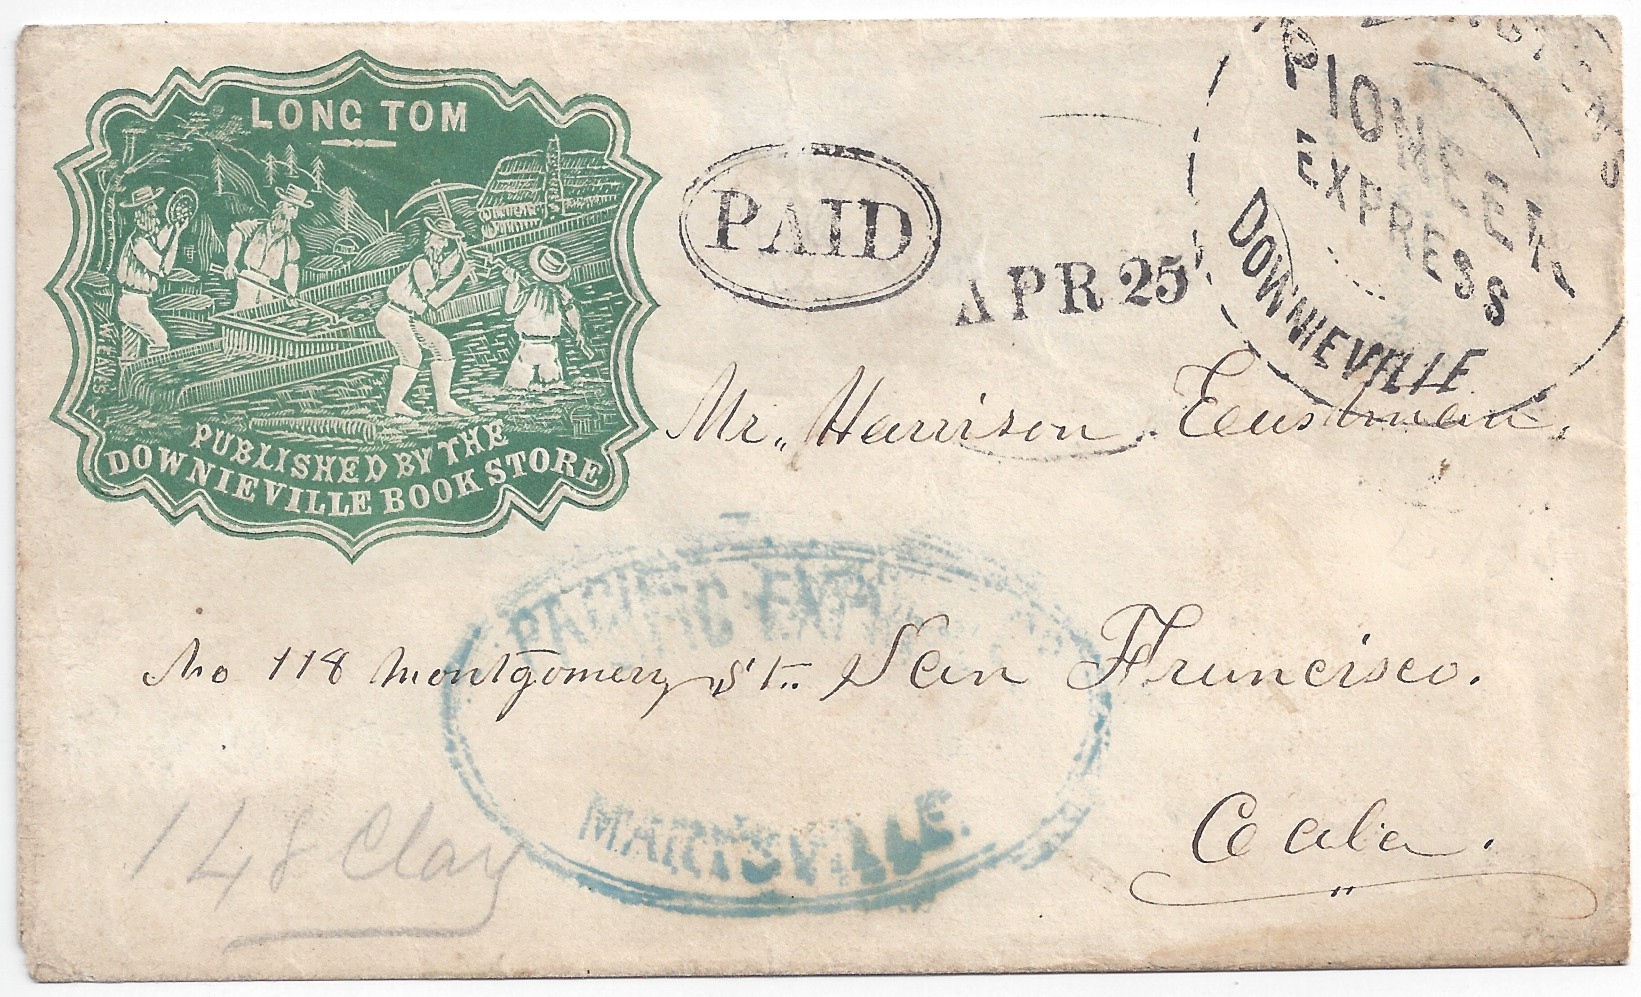 LONG TOM
PUBLISHED BY THE
DOWNIEVILLE BOOK STORE
PAID
APR 25
PIONEER
EXPRESS
DOWNIEVILLE
Mr,, Harrison Eastman,
No 118 Montgomery St.. San Francisco.
Cala.
PACIFIC EXPRESS
MARYSVILLE.
148 Clay